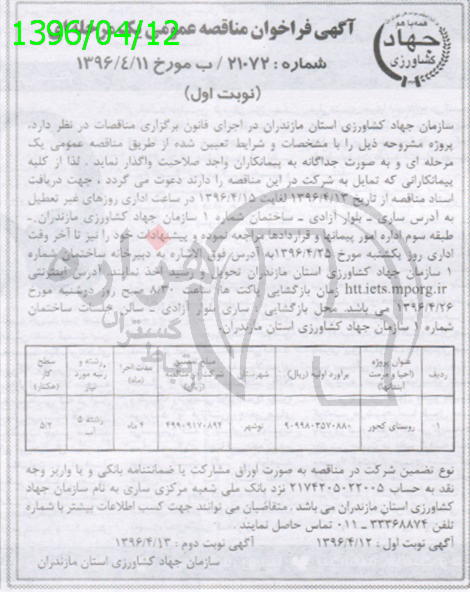 1396/04/12
آگهی فراخوان مناقصه عمومی یک مرحله ای
همه با هم
جهاد
کشاورزی
شماره : ۲۱۰۷۲ / ب مورخ ۱۳۹۶/۴/۱۱
(نوبت اول)
سازمان جهاد کشاورزی استان مازندران در اجرای قانون برگزاری مناقصات در نظر دارد،
پروژه مشروحه ذیل را با مشخصات و شرایط تعیین شده از طریق مناقصه عمومی یک
مرحله ای و به صورت جداگانه به پیمانکاران واجد صلاحیت واگذار نماید . لذا از کلیه
پیمانکارانی که تمایل به شرکت در این مناقصه را دارند دعوت می گردد ، جهت دریافت
اسناد مناقصه از تاریخ ۱۳۹۶/۴/۱۳ لغایت ۱۳۹۶/۴/۱۵ در ساعات اداری روزهای غیر تعطیل
به آدرس ساری ـ بلوار آزادی ـ ساختمان شماره ۱ سازمان جهاد کشاورزی مازندران ـ
طبقه سوم اداره امور پیمانها و قراردادها مراجعه نموده و پیشنهادات خود را نیز تا آخر وقت
اداری روز یکشنبه مورخ ۱۳۹۶/۴/۲۵ به آدرس فوق الاشاره به دبیرخانه ساختمان شماره
۱ سازمان جهاد کشاورزی استان مازندران تحویل و رسید اخذ نمایند. آدرس اینترنتی
htt.iets.mporg.ir زمان بازگشایی پاکت ها ساعت ۸/۳۰ صبح روز دوشنبه مورخ
۱۳۹۶/۴/۲۶ می باشد. محل بازگشایی ساری بلوار آزادی ـ سالن جلسات ساختمان
شماره ۱ سازمان جهاد کشاورزی استان مازندران.
ردیف عنوان پروژه (احیا و مرمت آببندانها) برآورد اولیه (ریال) شهرستان مبلغ تضمین شرکت در مناقصه (ریال) مدت اجرا (ماه) رشته و رتبه مورد نیاز سطح کار (هکتار)
۱ روستای کجور ۹۰۹۹۸۰۳۵۷۰۸۸۰ نوشهر ۴۹۹۰۹۱۷۰۸۹۴ ۴ ماه رشته ۵ آب ۵/۲
نوع تضمین شرکت در مناقصه به صورت اوراق مشارکت یا ضمانتنامه بانکی و یا واریز وجه
نقد به حساب ۲۱۷۴۲۰۵۰۲۲۰۰۵ نزد بانک ملی شعبه مرکزی ساری به نام سازمان جهاد
کشاورزی استان مازندران می باشد . متقاضیان می توانند جهت کسب اطلاعات بیشتر با شماره
تلفن ۳۳۳۶۸۸۷۴ ـ ۰۱۱ تماس حاصل نمایند .
آگهی نوبت اول : ۱۳۹۶/۴/۱۲ آگهی نوبت دوم : ۱۳۹۶/۴/۱۳
سازمان جهاد کشاورزی استان مازندران